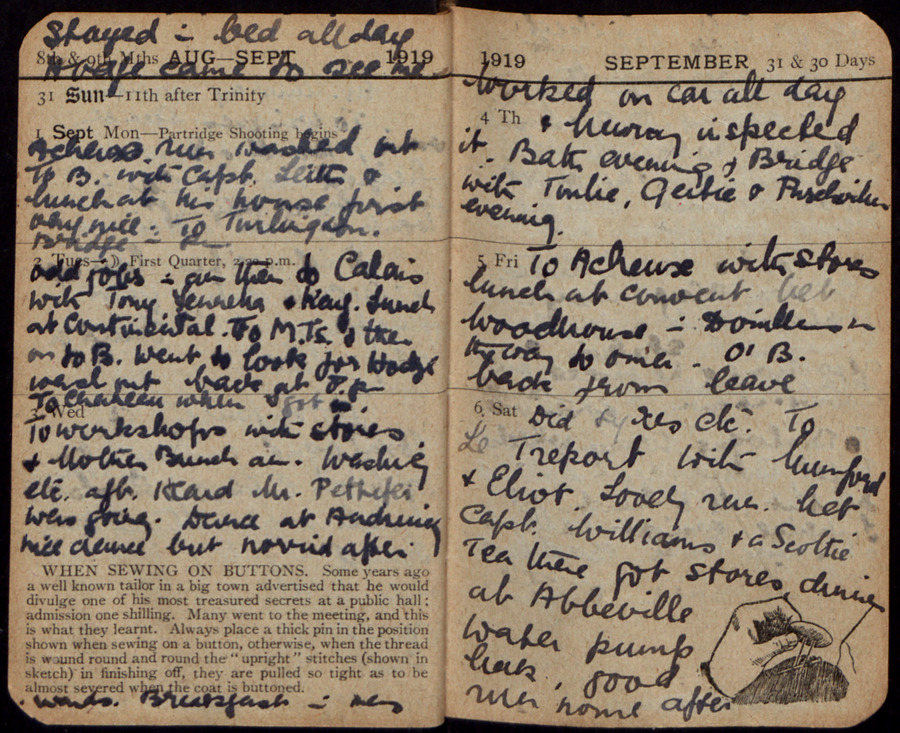 Stayed in bed all day
8th & 9th Mths AUG—SEPT 1919
Hodge came to see me
31 Sun—11th after Trinity
1 Sept Mon—Partridge Shooting begins
Acheux run washed out
To B. with Capt. Leith &
lunch at his house first
very nice. To Turlingham.
Bridge in
2 Tues—☽ First Quarter, 2.22 p.m.
odd jobs in am then to Calais
with Tony & Kay. Lunch
at Continental. To M.T.S. & then
on to B. Went to look for Hodge
wash out back at
To Chateau when I got in
3 Wed
To workshops with stores
& Mother Bunch am. Washing
etc. aft. Heard Mr. Pettifer
was going. Dance at Audruicq
nice dance but horrid after
WHEN SEWING ON BUTTONS. Some years ago
a well known tailor in a big town advertised that he would
divulge one of his most treasured secrets at a public hall;
admission one shilling. Many went to the meeting, and this
is what they learnt. Always place a thick pin in the position
shown when sewing on a button, otherwise, when the thread
is wound round and round the "upright" stitches (shown in
sketch) in finishing off, they are pulled so tight as to be
almost severed when the coat is buttoned.
wards. Breakfast in mess
1919 SEPTEMBER 31 & 30 Days
Worked on car all day
4 Th & Murray inspected
it. Bath evening & Bridge
with Timlie, Gertie &
evening.
5 Fri To Acheux with stores
lunch at convent Met
Woodhouse in Doullens on
the way to omer. O' B.
back from leave
6 Sat Did etc. To
Le Treport with Mumford
& Eliot. Lovely run. Met
Capt. Williams & a Scottie
Tea there got stores, dinner
at Abbeville
water pump
leak, good
run home after